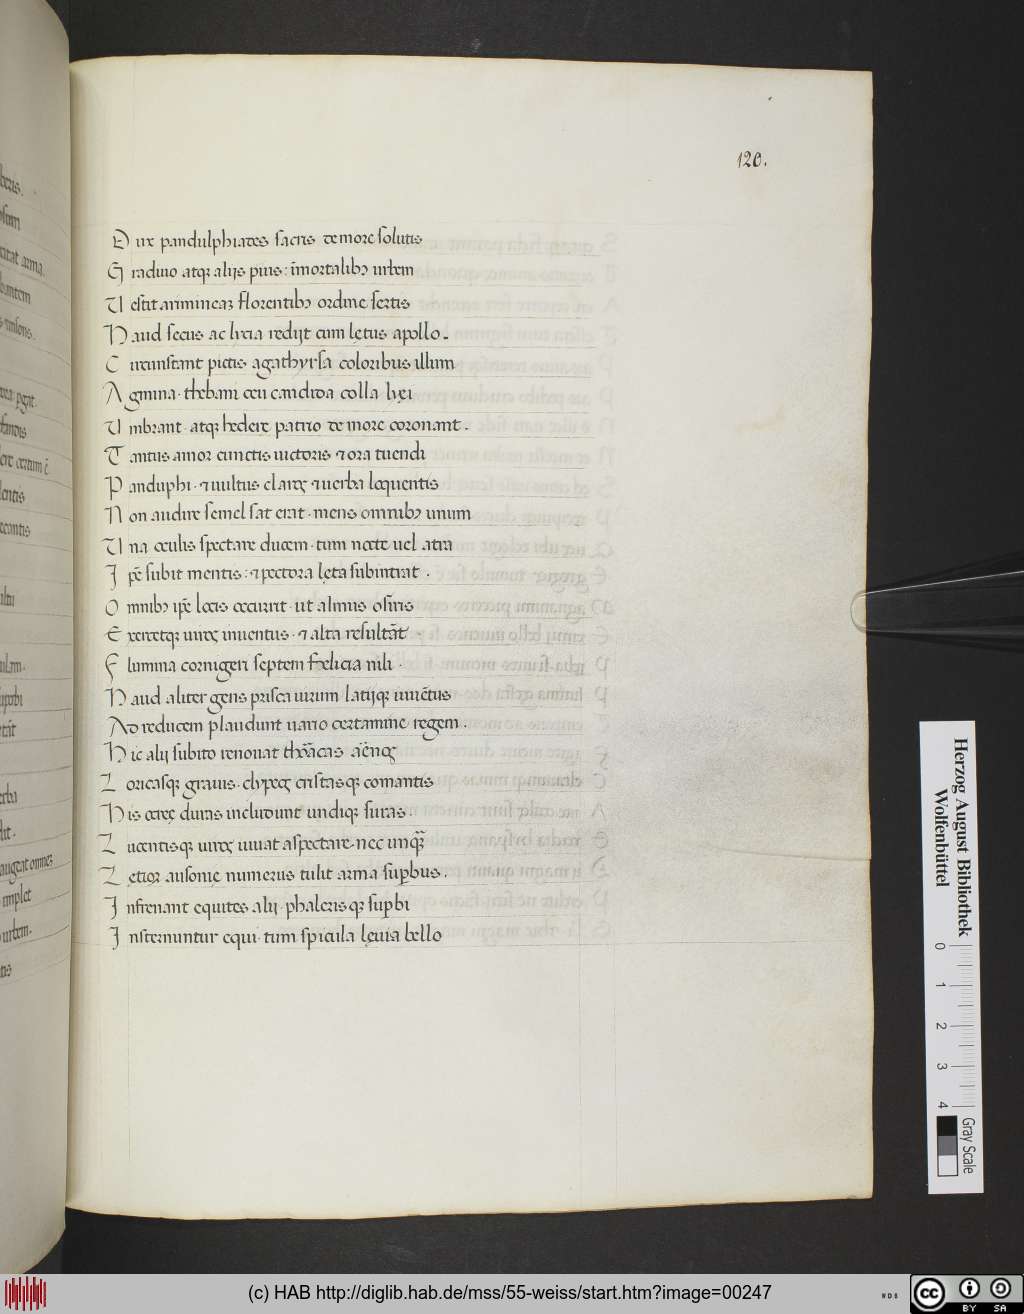 120.
D ux pandulphiades sacris de more solutis
G radiuo atqꝫ alijs pius : īmortalibꝫ urbem
U estit arimineaꝫ florentibꝫ ordine sertis
H aud secus ac lycia redijt cum lętus apollo .
C ircunstant pictis agathyrsa coloribus illum
A gmina · thebani ceu candida colla lyęi
U mbrant · atqꝫ hedere patrio de more coronant .
T antus amor cunctis uictoris ⁊ ora tuendi
P anduphi · ⁊ uultus claręꝫ ⁊ uerba loquentis
N on audire semel sat erat · mens omnibꝫ unum
U na oculis spectare ducem · tum nocte uel atra
I pē subit mentis : ⁊ pectora lęta subintrat .
O mnibꝫ ipē locis occurrit · ut almus osiris
E xercetqꝫ uireꝫ iuuentus · ⁊ alta resultāt
F lumina cornigeri septem felicia nili .
H aud aliter gens prisca uirum latijqꝫ iuuētus
A d reducem plaudunt uario certamine regem .
H ic alij subito renouat thorācas aēnoꝫ
L oricasqꝫ grauis · clypeoꝫ cristasqꝫ comantis
H is ocreꝫ duras includunt undiqꝫ suras .
L ucentisqꝫ uiroꝫ iuuat aspectare · nec unqꝫ̄
L etior ausonie numerus tulit arma suꝑbus .
I nfrenant equites alij · phalerisqꝫ suꝑbi
I nsternuntur equi · tum spicula lęuia bello
Herzog August Bibliothek
Wolfenbüttel
0 1 2 3 4
Gray Scale
(c) HAB http://diglib.hab.de/mss/55-weiss/start.htm?image=00247
cc BY SA